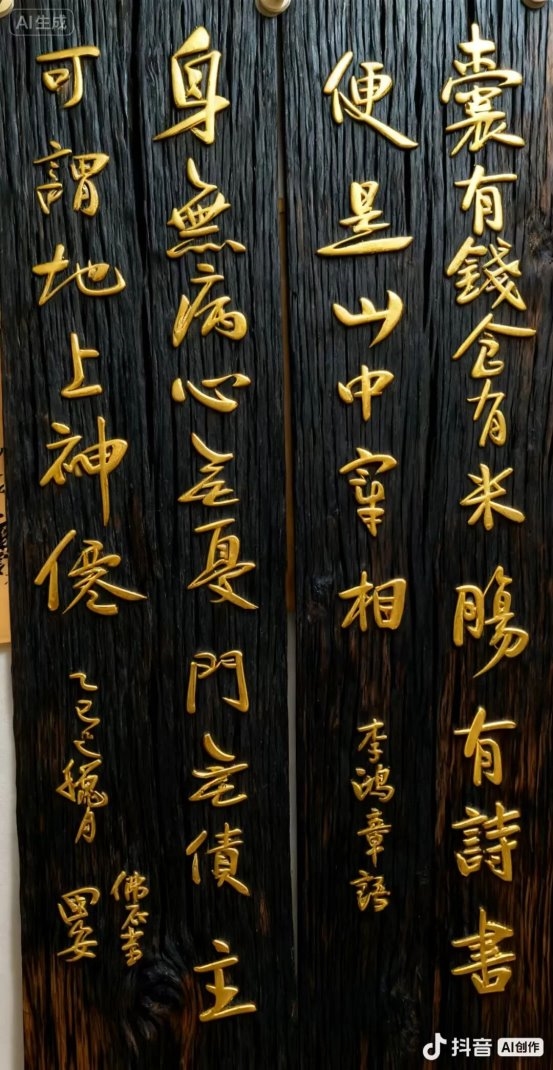 囊有錢仓有米腸有詩書
便是山中宰相
李鴻章語
身無病心无憂門无債主
可謂地上神僊
乙巳臘月
佛石書
田安
AI生成
抖音 AI创作